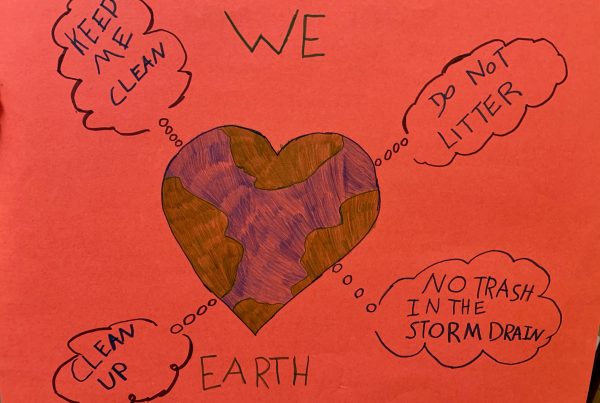 WE
KEEP
ME
CLEAN
DO NOT
LITTER
NO TRASH
IN THE
STORM DRAIN
CLEAN
UP
EARTH